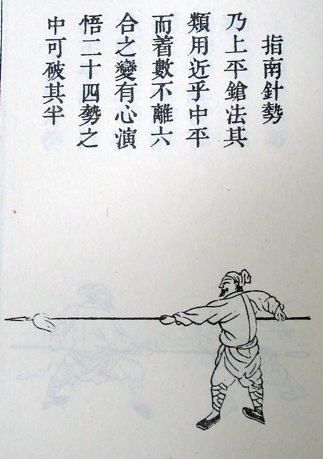 指南針勢
乃上平鎗法其
類用近乎中平
而着數不離六
合之變有心演
悟二十四勢之
中可破其半